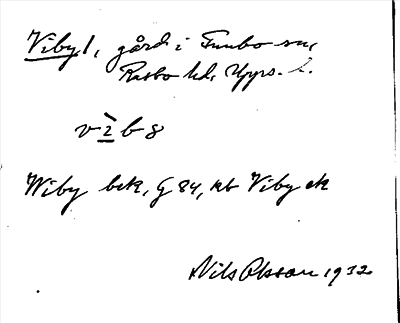 Viby 1, gård i Funbo sn,
Rasbo hd, Upps. l.
v 2 b 8
Wiby bek, G 84, kb Viby ek
Nils Olsson 1932